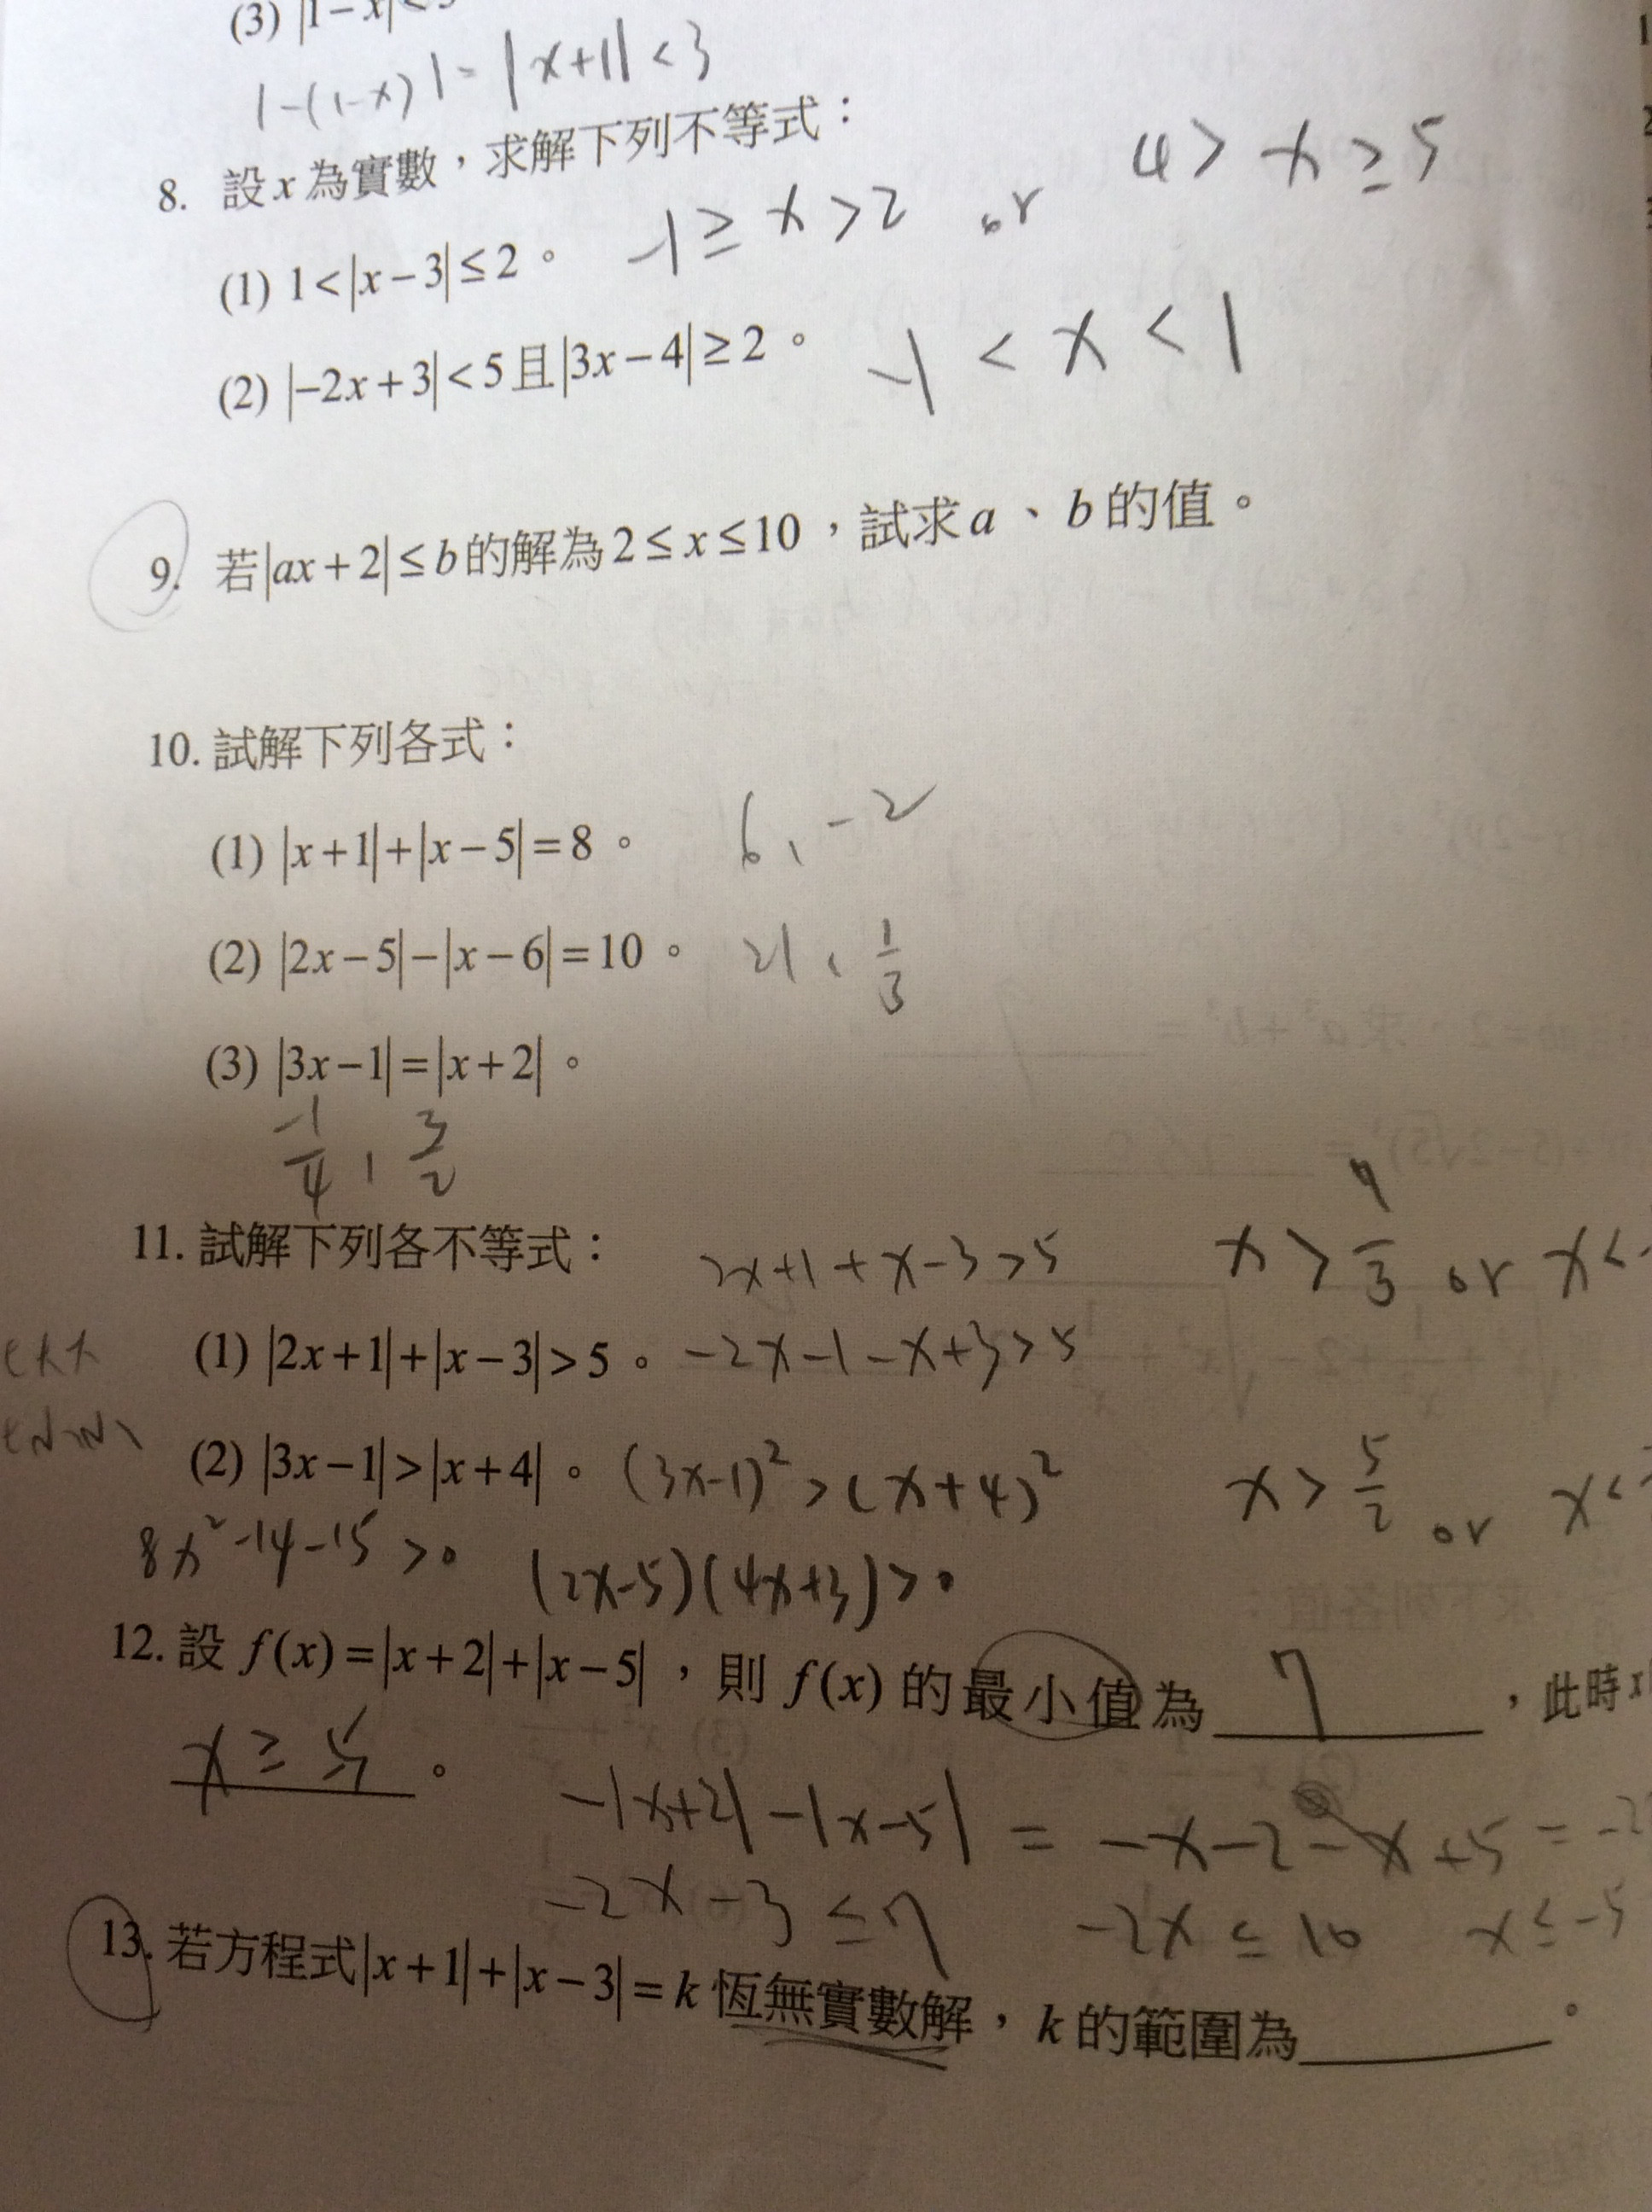 (3) |1-x|<
|-(1-x)|=|x+1|<3
8. 設x為實數，求解下列不等式：
(1) 1<|x-3|≤2。 -1≥x>2 or 4>x≥5
(2) |-2x+3|<5且|3x-4|≥2。 -1<x<1
9. 若|ax+2|≤b的解為2≤x≤10，試求a、b的值。
10. 試解下列各式：
(1) |x+1|+|x-5|=8。 6, -2
(2) |2x-5|-|x-6|=10。 21, 1/3
(3) |3x-1|=|x+2|。
-1/4, 3/2
11. 試解下列各不等式： 2x+1+x-3>5 x>7/3 or x<-
(1) |2x+1|+|x-3|>5。 -2x-1-x+3>5
(2) |3x-1|>|x+4|。 (3x-1)²>(x+4)² x>5/2 or x<
8x²-14-15>0 (2x-5)(4x+3)>0
12. 設 f(x)=|x+2|+|x-5|，則 f(x) 的最小值為 7 ，此時x
x≥5。
-|x+2|-|x-5| = -x-2-x+5 = -2
-2x-3≤7 -2x≤10 x≤-5
13. 若方程式|x+1|+|x-3|=k恆無實數解，k的範圍為______。